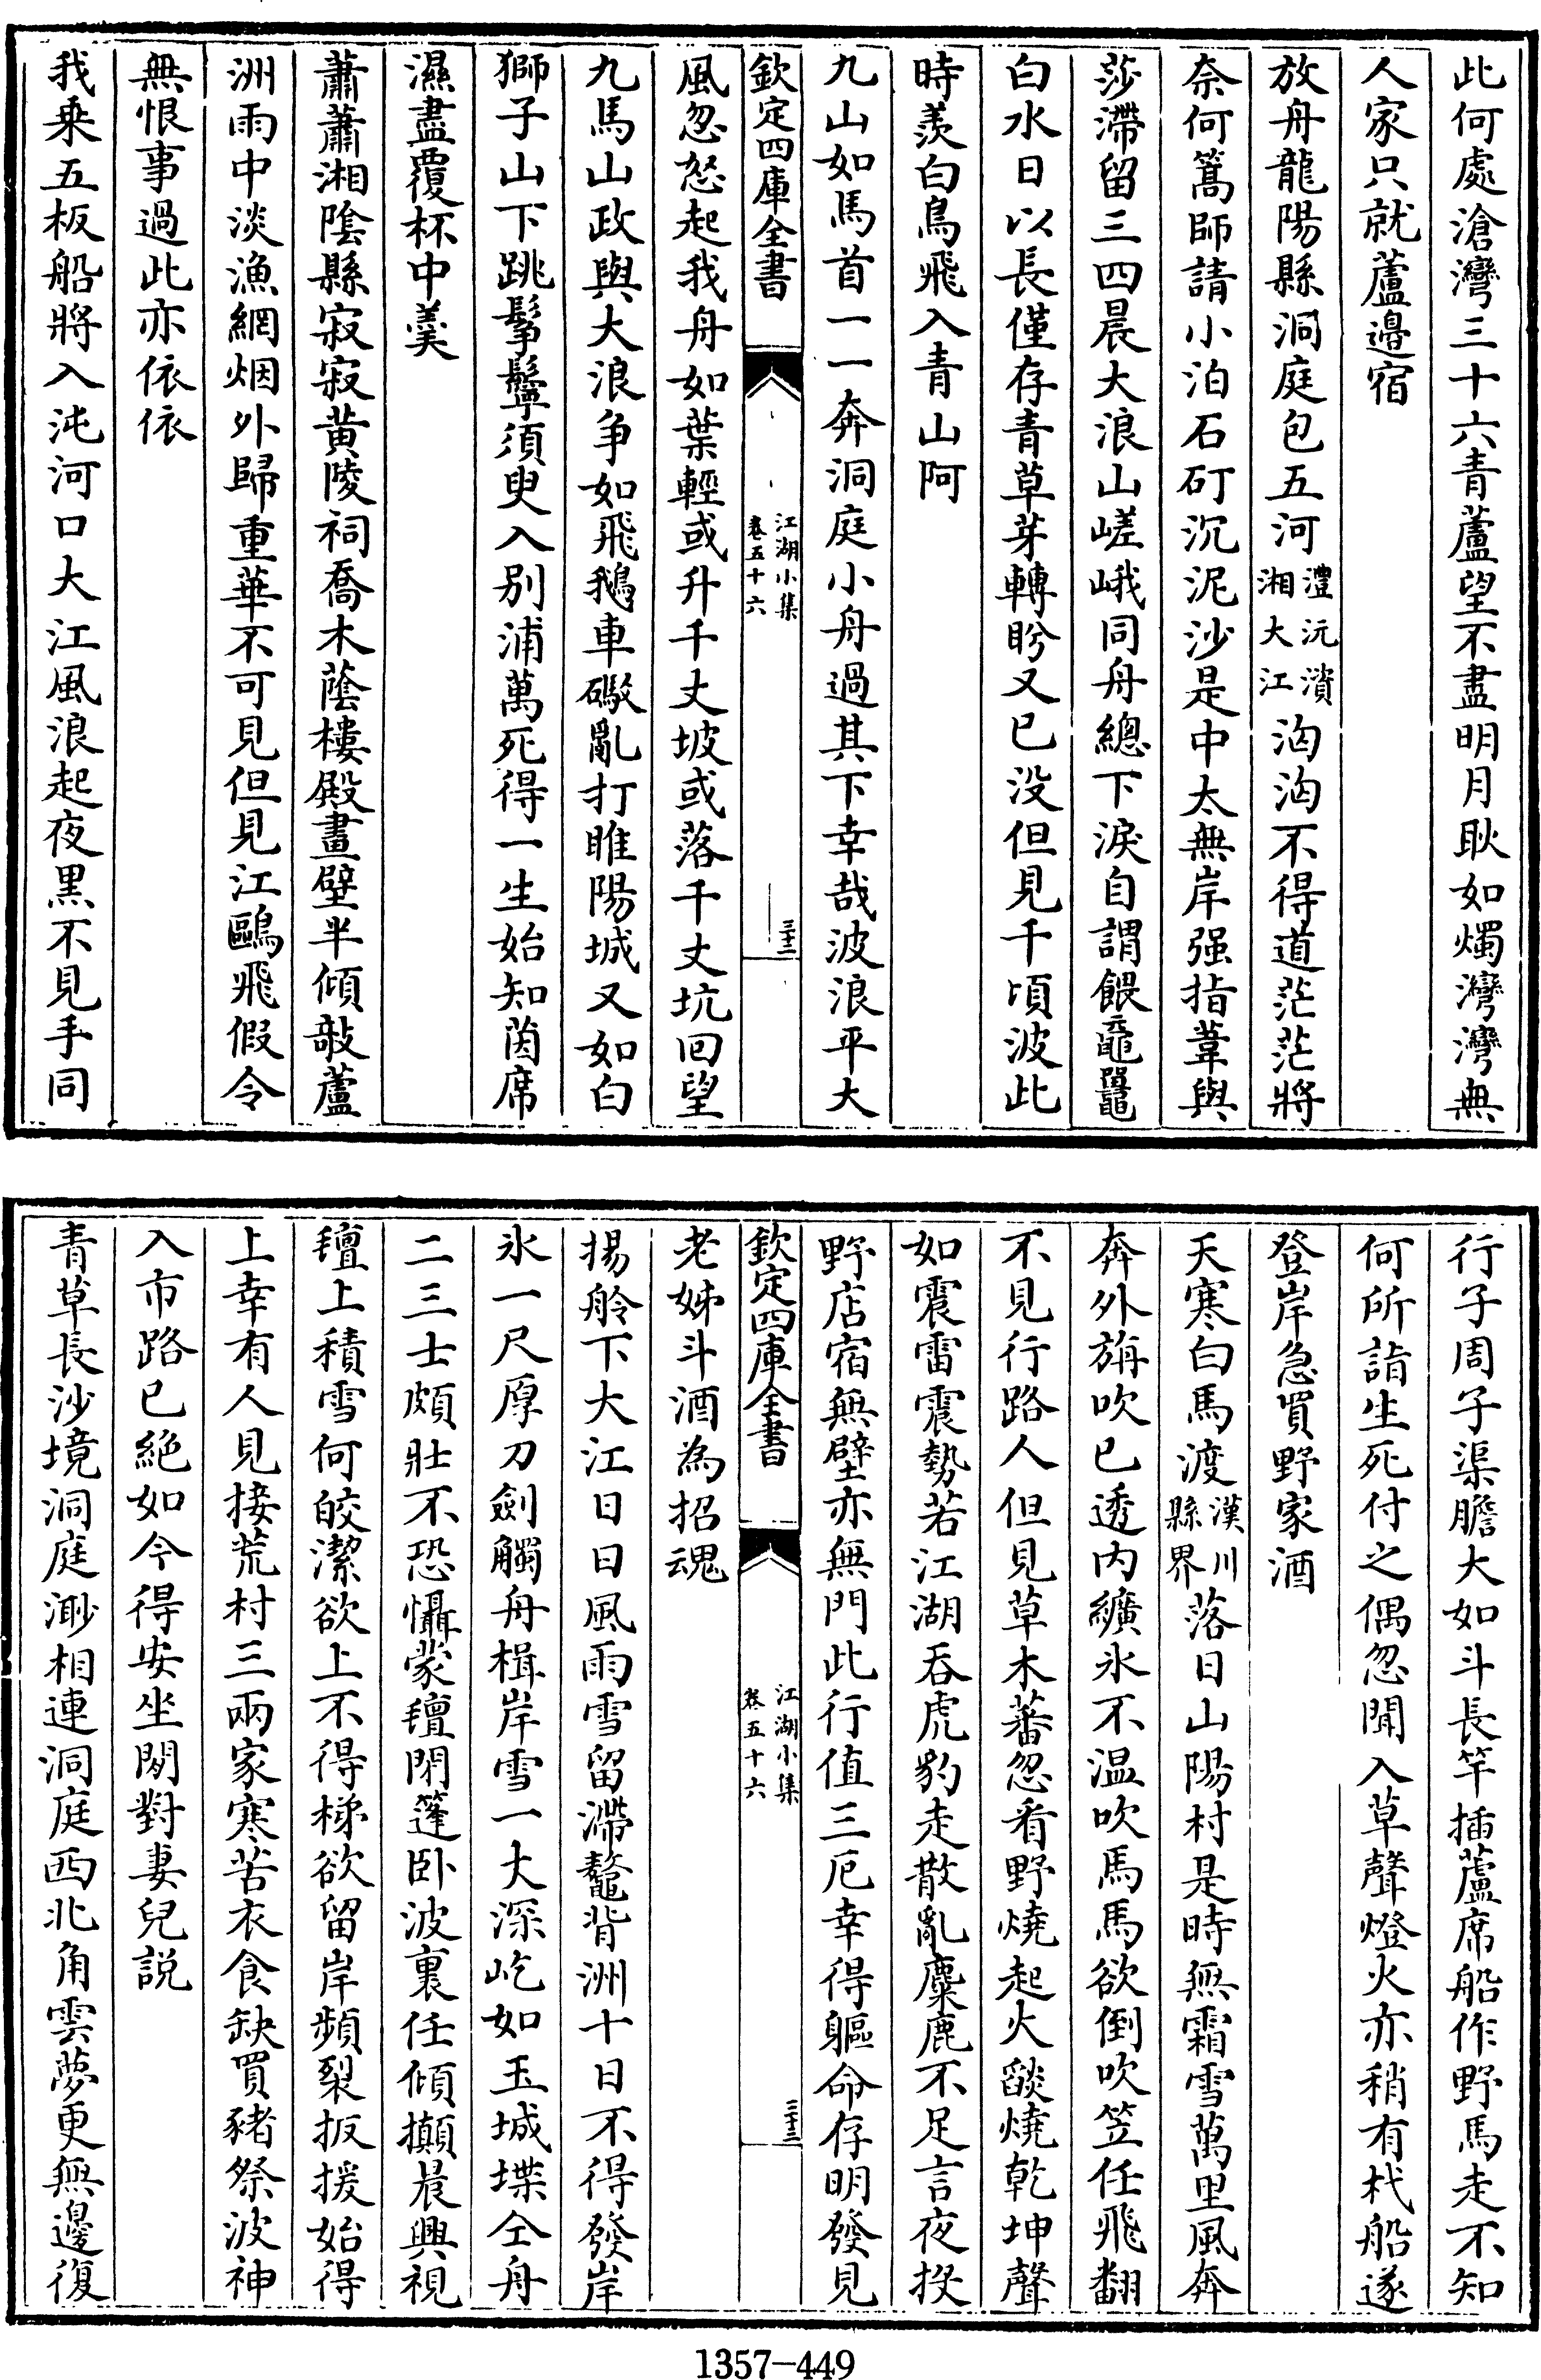 此何處滄灣三十六青蘆望不盡明月耿如燭灣灣無
人家只就蘆邉宿
放舟龍陽縣洞庭包五河澧沅濱湘大江洶洶不得道茫茫將
奈何篙師請小泊石矴沉泥沙是中太無岸强指葦與
莎滯留三四晨大浪山嵯峨同舟總下淚自謂餵黿鼉
白水日以長僅存青草芽轉盻又已没但見千頃波此
時羨白鳥飛入青山阿
九山如馬首一一奔洞庭小舟過其下幸哉波浪平大
欽定四庫全書
江湖小集
卷五十六
三十二
風忽怒起我舟如葉輕或升千丈坡或落千丈坑回望
九馬山政與大浪争如飛鵝車礮亂打睢陽城又如白
獅子山下跳髳鬡須臾入别浦萬死得一生始知茵席
濕盡覆杯中羮
蕭蕭湘陰縣寂寂黄陵祠喬木蔭樓殿畫壁半傾敧蘆
洲雨中淡漁網烟外歸重華不可見但見江鷗飛假令
無恨事過此亦依依
我乗五板船將入沌河口大江風浪起夜黒不見手同
行子周子渠膽大如斗長竿插蘆席船作野馬走不知
何所詣生死付之偶忽聞入草聲燈火亦稍有杙船遂
登岸急買野家酒
天寒白馬渡漢川縣界落日山陽村是時無霜雪萬里風奔
奔外旃吹已透内纊氷不温吹馬馬欲倒吹笠任飛翻
不見行路人但見草木蕃忽看野燒起火燄燒乾坤聲
如震雷震勢若江湖吞虎豹走散亂麋鹿不足言夜投
野店宿無壁亦無門此行值三厄幸得軀命存明發見
欽定四庫全書
江湖小集
卷五十六
三十三
老姊斗酒為招魂
揚舲下大江日日風雨雪留滯鼇背洲十日不得發岸
氷一尺厚刀劒觸舟楫岸雪一丈深屹如玉城堞仝舟
二三士頗壯不恐懾蒙氊閉篷卧波裏任傾攧晨興視
氊上積雪何皎潔欲上不得梯欲留岸頻裂扳援始得
上幸有人見接荒村三兩家寒苦衣食缺買豬祭波神
入市路已絶如今得安坐閒對妻兒説
青草長沙境洞庭渺相連洞庭西北角雲夢更無邊復
1357-449